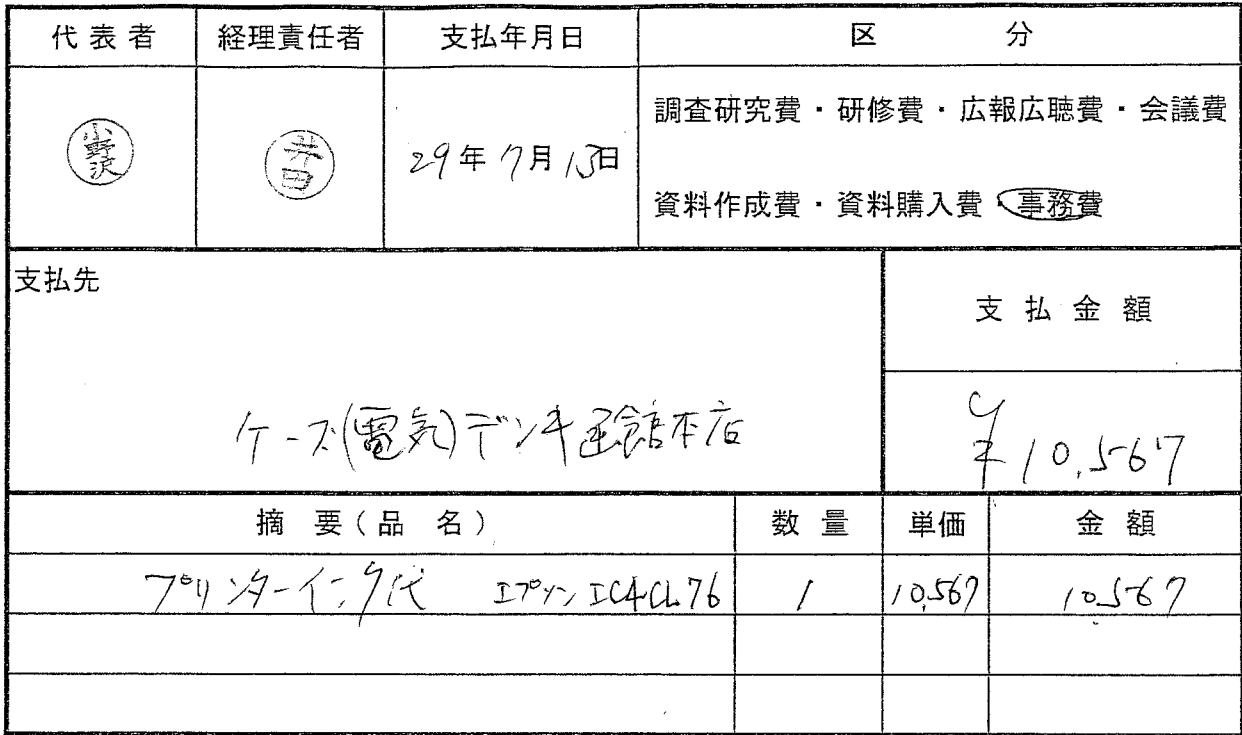 代表者 経理責任者 支払年月日 区 分
小野沢 井田 29年7月15日
調査研究費・研修費・広報広聴費・会議費
資料作成費・資料購入費・事務費
支払先
支払金額
ケーズ(電気)デンキ函館本店
¥10,567
摘 要(品 名) 数量 単価 金額
プリンターインク代 エプソンIC4CL76 1 10,567 10,567